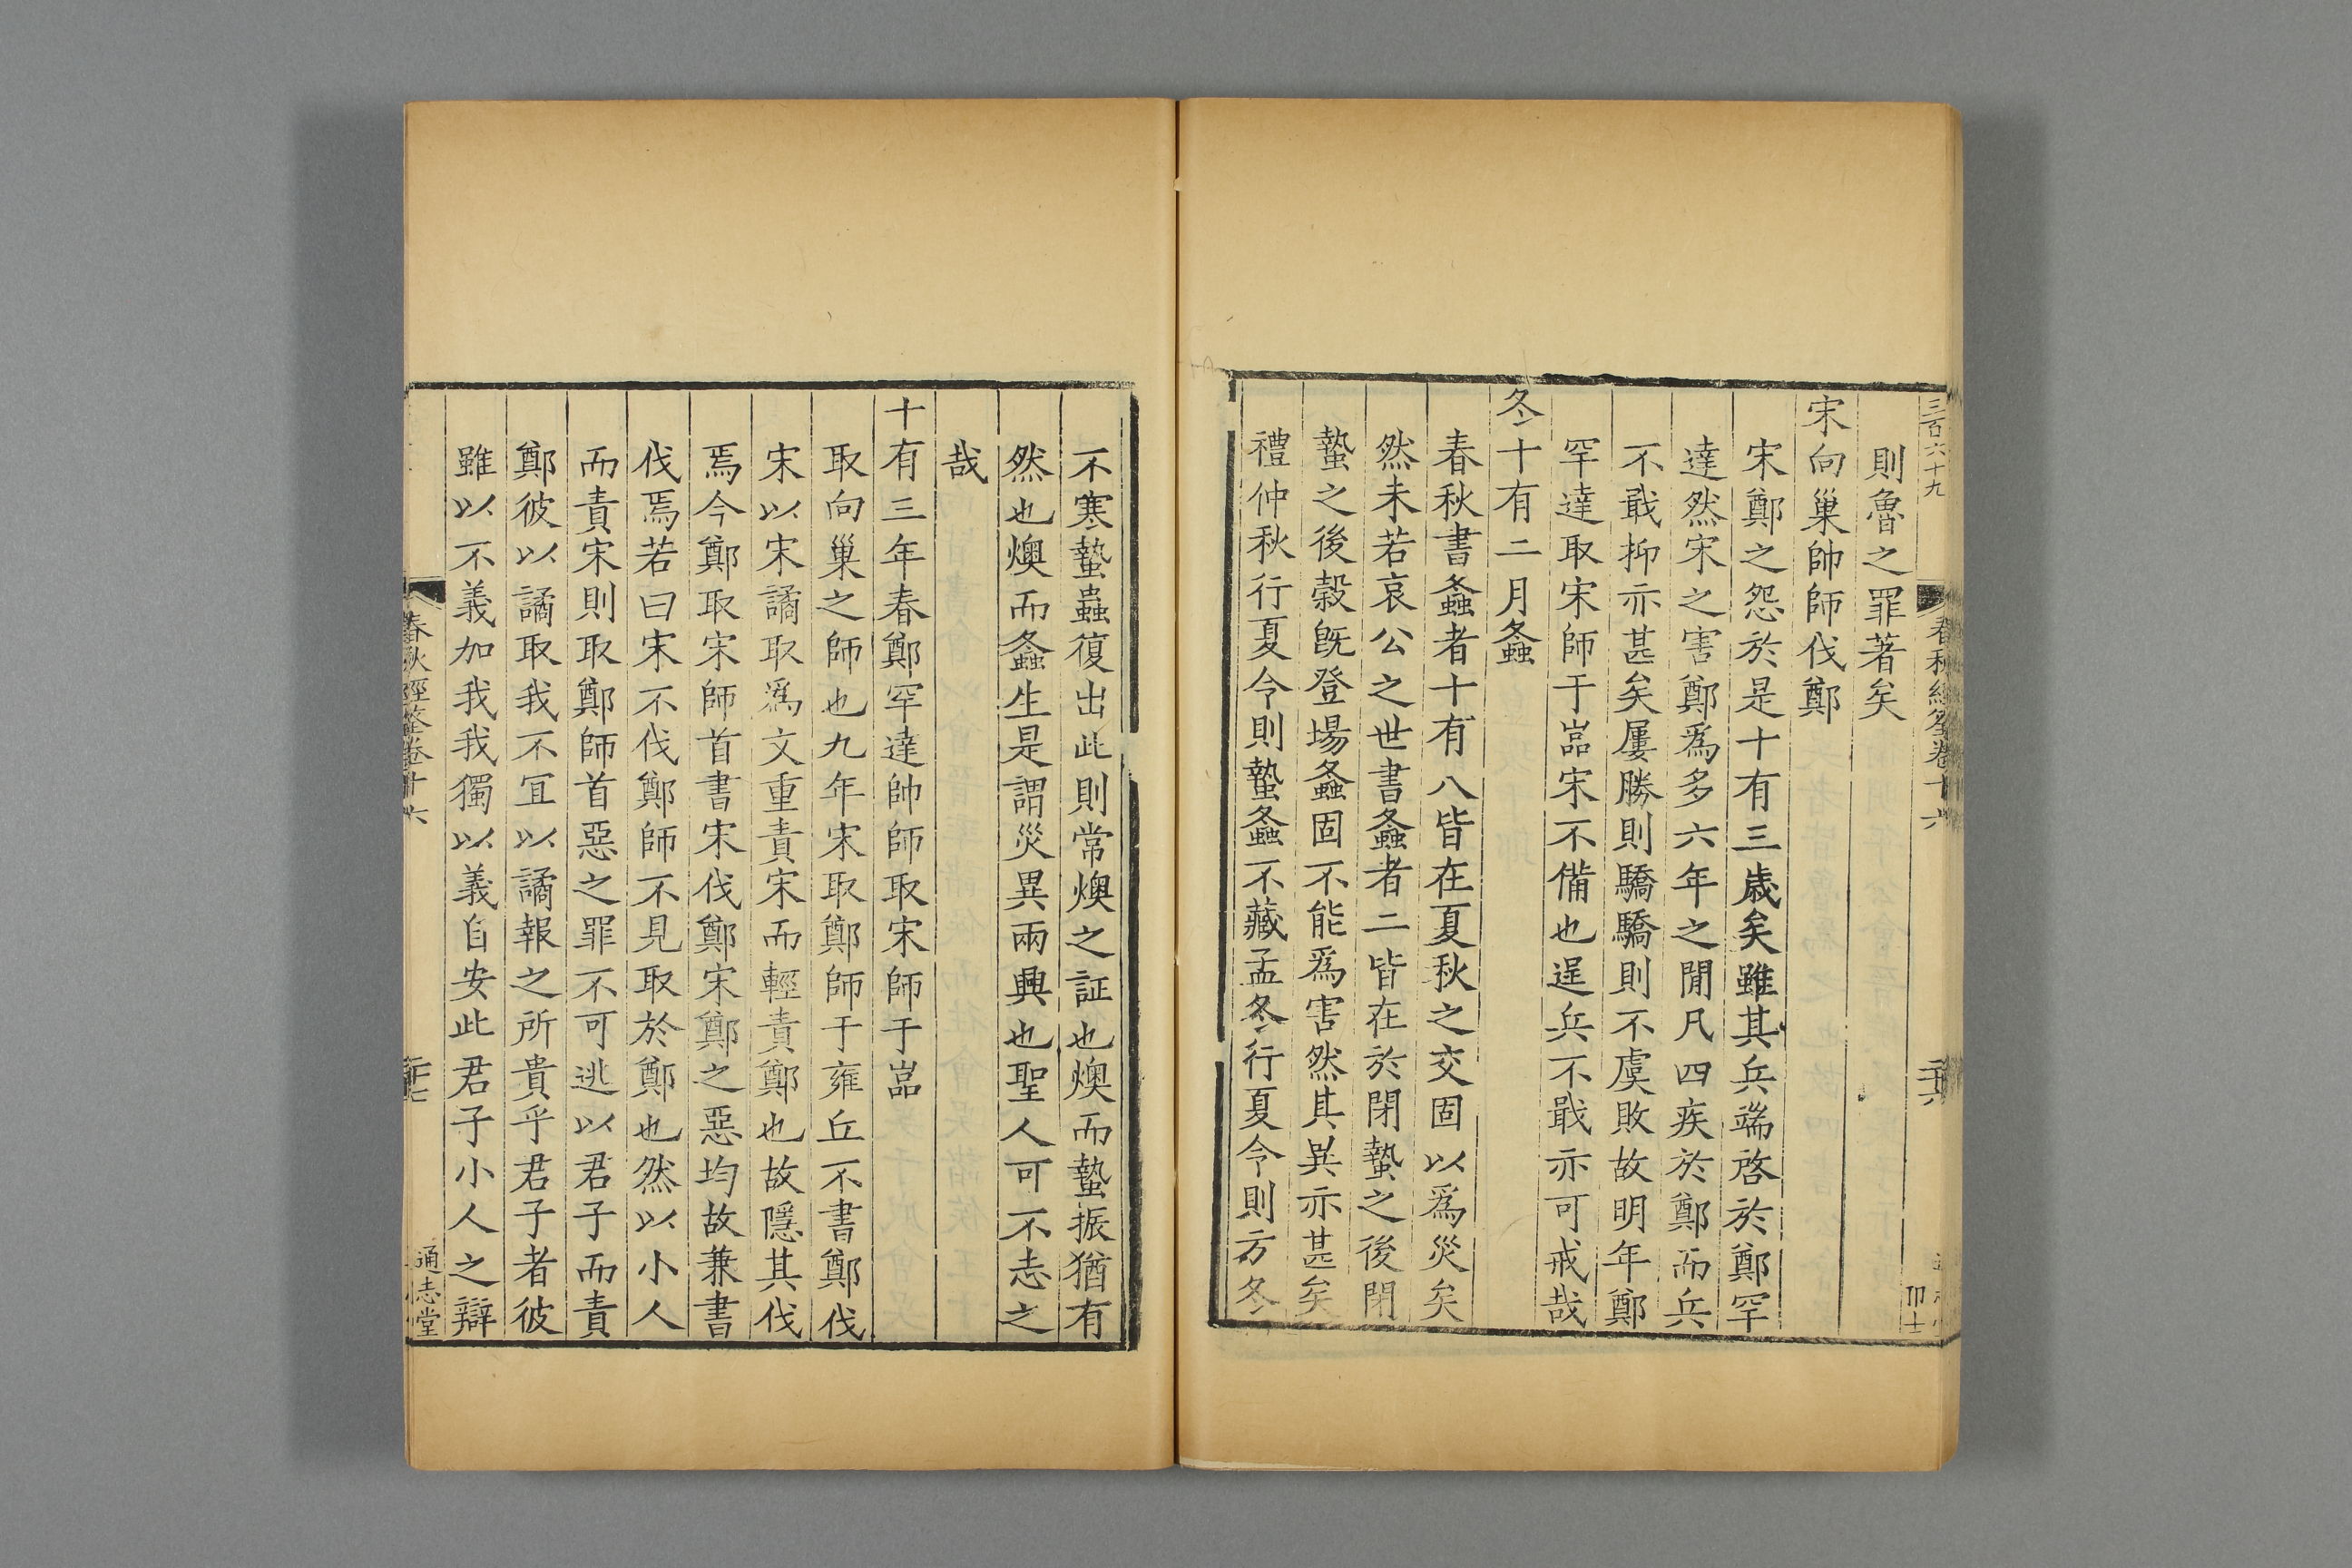 三百六十九
春秋經筌卷十六
則魯之罪著矣
宋向巢帥師伐鄭
宋鄭之怨於是十有三歲矣雖其兵端啓於鄭罕
達然宋之害鄭爲多六年之閒凡四疾於鄭而兵
不戢抑亦甚矣屢勝則驕驕則不虞敗故明年鄭
罕達取宋師于嵒宋不備也逞兵不戢亦可戒哉
冬十有二月螽
春秋書螽者十有八皆在夏秋之交固以爲災矣
然未若哀公之世書螽者二皆在於閉蟄之後閉
蟄之後穀既登場螽固不能爲害然其異亦甚矣
禮仲秋行夏令則蟄螽不藏孟冬行夏令則方冬
不寒蟄蟲復出此則常燠之証也燠而蟄振猶有
然也燠而螽生是謂災異兩興也聖人可不志之
哉
十有三年春鄭罕達帥師取宋師于嵒
取向巢之師也九年宋取鄭師于雍丘不書鄭伐
宋以宋譎取爲文重責宋而輕責鄭也故隱其伐
焉今鄭取宋師首書宋伐鄭宋鄭之惡均故兼書
伐焉若曰宋不伐鄭師不見取於鄭也然以小人
而責宋則取鄭師首惡之罪不可逃以君子而責
鄭彼以譎取我不宜以譎報之所貴乎君子者彼
雖以不義加我我獨以義自安此君子小人之辯
春秋經筌卷十六
二十七
通志堂